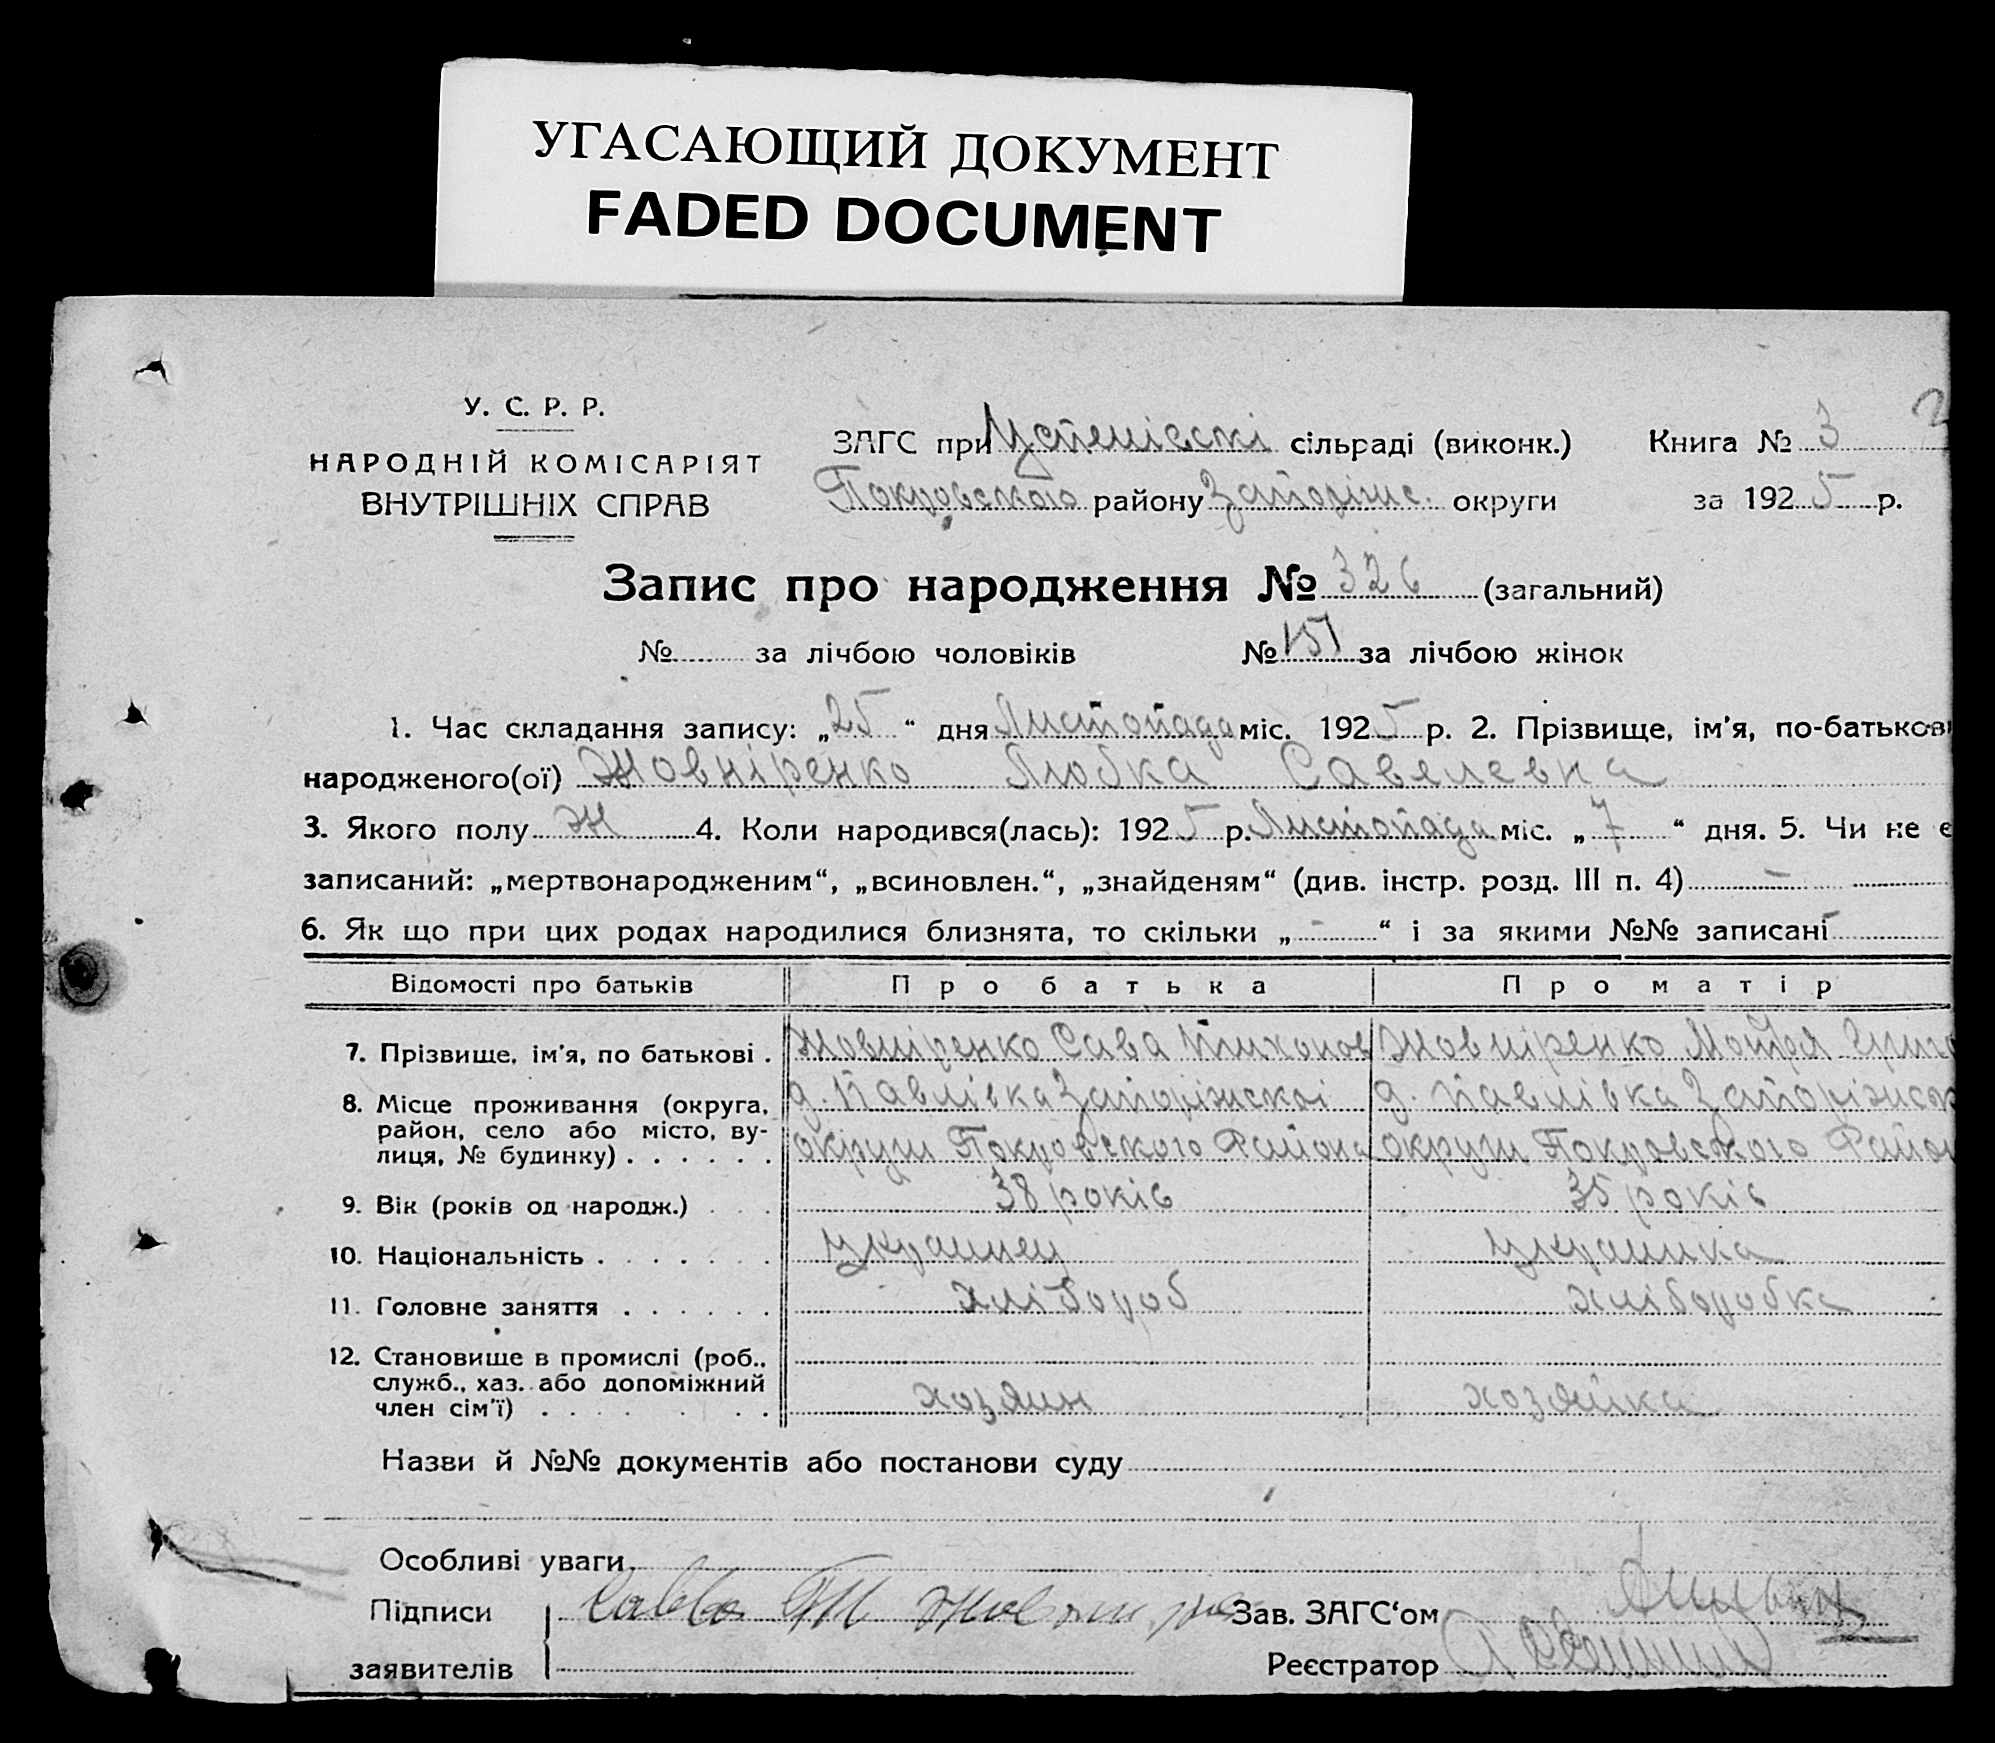 УГАСАЮЩИЙ ДОКУМЕНТ
FADED DOCUMENT
У. С. Р. Р.
НАРОДНІЙ КОМІСАРІЯТ
ВНУТРІШНІХ СПРАВ
ЗАГС при Успенівскі сільраді (виконк.) Книга № 3
Покровского району Запоріжс. округи за 1925 р.
Запис про народження № 326 (загальний)
№ за лічбою чоловіків № 151 за лічбою жінок
1. Час складання запису: „25“ дня Листопада міс. 1925 р. 2. Прізвище, ім'я, по-батькові
народженого(ої) Жовніренко Любка Савелевна
3. Якого полу ж 4. Коли народився(лась): 1925 р. Листопада міс. „7“ дня. 5. Чи не є
записаний: „мертвонародженим“, „всиновлен.“, „знайденям“ (див. інстр. розд. III п. 4) -
6. Як що при цих родах народилися близнята, то скільки „-“ і за якими №№ записані -
Відомості про батьків Про батька Про матір
7. Прізвище, ім'я, по батькові . Жовніренко Сава Тихонов Жовніренко Мотря Григо
8. Місце проживання (округа, д. Павлівка Запоріжскоі д. Павлівка Запоріжск
район, село або місто, ву-
лиця, № будинку) . . . . . . округи Покровского Району округи Покровского Район
9. Вік (років од народж.) . . . 38 років 35 років
10. Національність . . . . . . . украинец украинка
11. Головне заняття . . . . . . хлібороб хліборобка
12. Становище в промислі (роб.,
служб., хаз. або допоміжний
член сім'ї) . . . . . . . хозяин хозяйка
Назви й №№ документів або постанови суду
Особливі уваги
Підписи Савва Зав. ЗАГС‘ом
заявителів Реєстратор